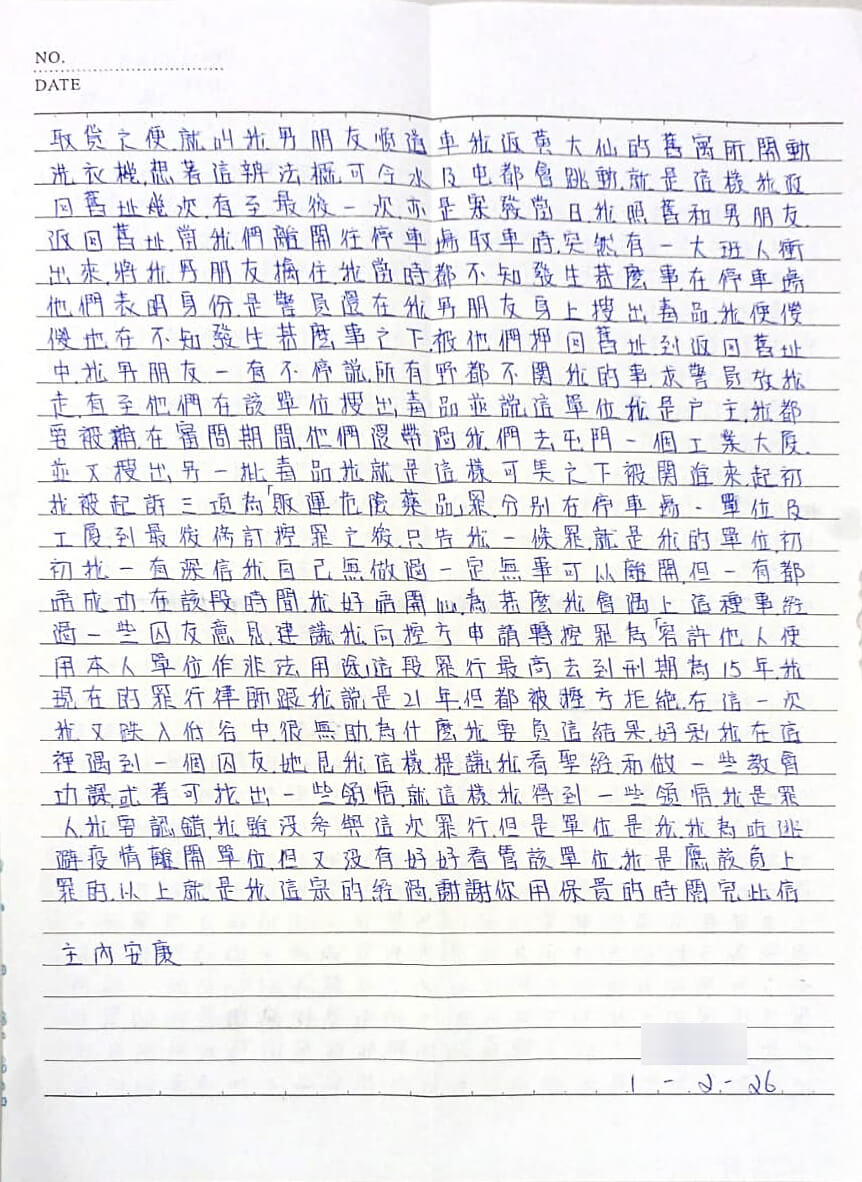 NO.
DATE
取貨之便就叫我男朋友順道車我返黃大仙的舊寓所,開動
洗衣機,想著這辦法概可令水及电都會跳動,就是這樣我返
回舊址幾次,直至最後一次亦是案發當日,我照舊和男朋友
返回舊址,當我們離開往停車場取車時,突然有一大班人衝
出來,將我男朋友擒住,我當時都不知發生甚麼事,在停車場
他們表明身份是警員還在我男朋友身上搜出毒品,我便傻
傻地在不知發生甚麼事之下,被他們押回舊址,到返回舊址
中,我男朋友一直不停說,所有野都不関我的事,求警員放我
走,直至他們在該單位搜出毒品並說這單位我是戶主,我都
要被補,在審問期間,他們還帶過我們去屯門一個工業大廈.
並又搜出另一批毒品,我就是這樣可笑之下被関進來,起初
我被起訴三項為「販運危險藥品」罪,分别在停車場、單位及
工厦,到最後修訂控罪之後,只告我一條罪,就是我的單位,初
初我一直深信我自己無做過一定無事可以離開,但一直都
唔成功,在該段時間,我好唔開心,為甚麼我會遇上這種事,經
過一些囚友意見,建議我向控方申請轉控罪為「容許他人使
用本人單位作非法用途」這段罪行最高去到刑期為15年,我
現在的罪行律師跟我說是21年,但都被控方拒絕,在這一次
我又跌入低谷中,很無助,為什麼我要負這結果,好彩我在這
裡遇到一個囚友,她見我這樣,提議我看聖經和做一些教會
功課或者可找出一些領悟,就這樣我得到一些領悟,我是罪
人,我要認錯,我雖没參與這次罪行,但是單位是我,我為咗逃
避疫情離開單位,但又没有好好看管該單位,我是應該負上
罪的,以上就是我這宗的經過,謝謝你用保貴的時間完此信
主內安康.
1.-.2.-26.